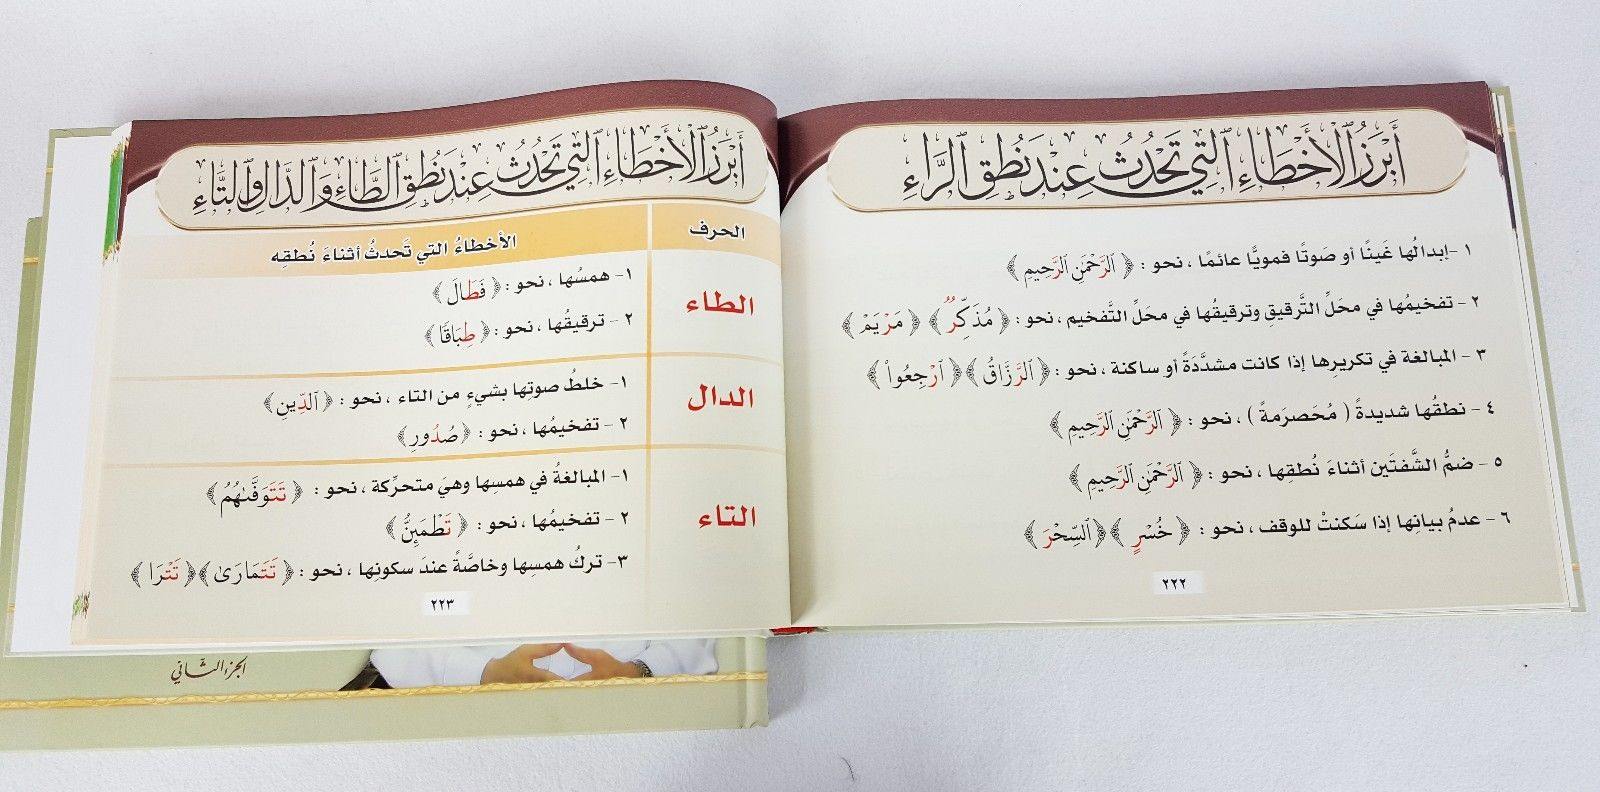 أَبْرَزُ ٱلْأَخْطَاءِ ٱلَّتِي تَحْدُثُ عِنْدَ نُطْقِ ٱلرَّاءِ
١- إبدالُها غَينًا أو صَوتًا فمويًّا عائمًا ، نحو : ﴿ ٱلرَّحْمَٰنِ ٱلرَّحِيمِ ﴾
٢- تفخيمُها في محَلِّ التَّرقيقِ وترقيقُها في محَلِّ التَّفخيم ، نحو : ﴿ مُذَكِّرٌ ﴾ ﴿ مَرْيَمَ ﴾
٣- المبالغة في تكريرِها إذا كانت مشدَّدَةً أو ساكنة ، نحو : ﴿ ٱلرَّزَّاقُ ﴾ ﴿ ٱرْجِعُوا۟ ﴾
٤- نطقُها شديدةً ( مُحَصرَمةً ) ، نحو : ﴿ ٱلرَّحْمَٰنِ ٱلرَّحِيمِ ﴾
٥- ضمُّ الشَّفتَين أثناءَ نُطقِها ، نحو : ﴿ ٱلرَّحْمَٰنِ ٱلرَّحِيمِ ﴾
٦- عدمُ بيانِها إذا سَكنتْ للوقف ، نحو : ﴿ خُسْرٍ ﴾ ﴿ ٱلسِّحْرَ ﴾
٢٢٢
أَبْرَزُ ٱلْأَخْطَاءِ ٱلَّتِي تَحْدُثُ عِنْدَ نُطْقِ ٱلطَّاءِ وَٱلدَّالِ وَٱلتَّاءِ
الحرف
الأخطاءُ التي تَحدثُ أثناءَ نُطقِه
الطاء
١- همسُها ، نحو : ﴿ فَطَالَ ﴾
٢- ترقيقُها ، نحو : ﴿ طِبَاقًا ﴾
الدال
١- خلطُ صوتِها بشيءٍ من التاء ، نحو : ﴿ ٱلدِّينِ ﴾
٢- تفخيمُها ، نحو : ﴿ صُدُورِ ﴾
التاء
١- المبالغةُ في همسِها وهيَ متحرِّكة ، نحو : ﴿ تَتَوَفَّىٰهُمُ ﴾
٢- تفخيمُها ، نحو : ﴿ تَطْمَئِنُّ ﴾
٣- تركُ همسِها وخاصَّةً عندَ سكونِها ، نحو : ﴿ تَتَمَارَىٰ ﴾ ﴿ تَتْرَا ﴾
٢٢٣
الجزء الثاني